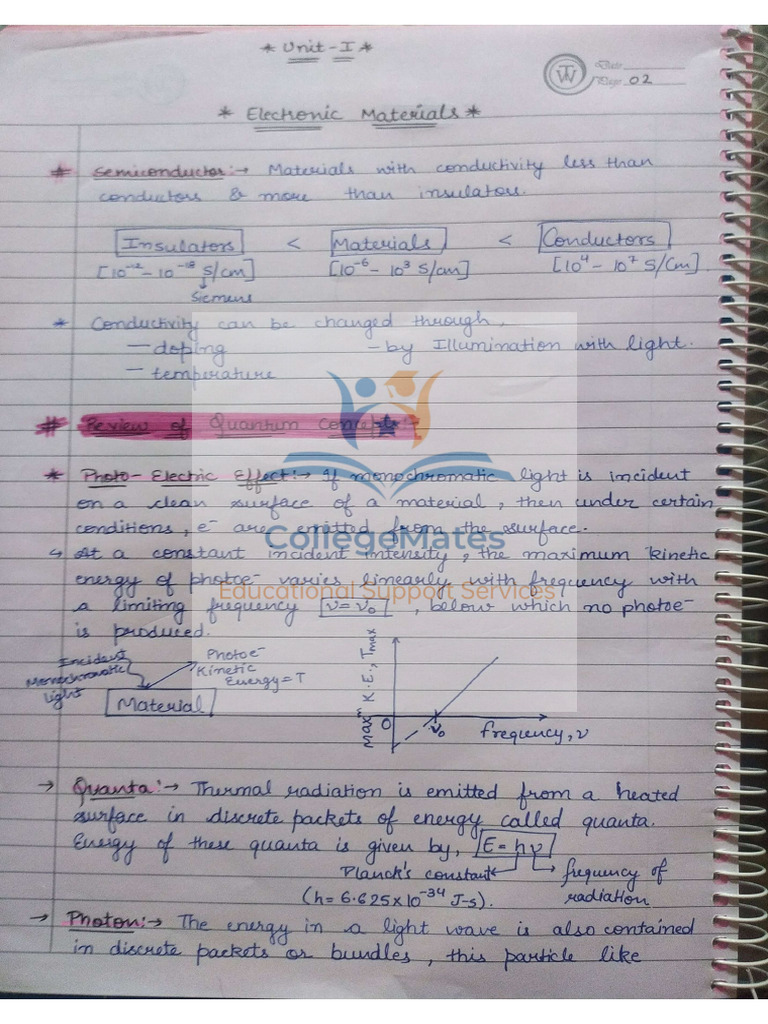 * Unit - I *
TW
Date
Page 02
* Electronic Materials *
* Semiconductor :→ Materials with conductivity less than
conductors & more than insulators.
Insulators < Materials < Conductors
[10⁻¹² - 10⁻¹⁸ S/cm] [10⁻⁶ - 10³ S/cm] [10⁴ - 10⁷ S/cm]
Siemens
* Conductivity can be changed through,
- doping - by Illumination with light.
- temperature
# Review of Quantum Concepts
* Photo-Electric Effect :→ If monochromatic light is incident
on a clean surface of a material, then under certain
conditions, e⁻ are emitted from the surface.
CollegeMates
↳ At a constant incident intensity, the maximum kinetic
energy of photoe⁻ varies linearly with frequency with
Educational Support Services
a limiting frequency ν = ν₀, below which no photoe⁻
is produced.
Incident
Monochromatic
light
Photoe⁻
Kinetic
Energy = T
Material
maxᵐ K.E., Tmax
O
ν₀
frequency, ν
→ Quanta :→ Thermal radiation is emitted from a heated
surface in discrete packets of energy called quanta.
Energy of these quanta is given by, E = hν
Planck's constant ← → frequency of
(h = 6.625 × 10⁻³⁴ J-s). radiation
→ Photon :→ The energy in a light wave is also contained
in discrete packets or bundles, this particle like